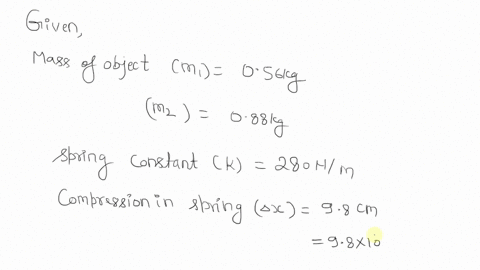 Given,
Mass of object (m₁) = 0.56kg
(m₂) = 0.88kg
Spring constant (k) = 280 N/m
Compression in spring (Δx) = 9.8 cm
= 9.8×10